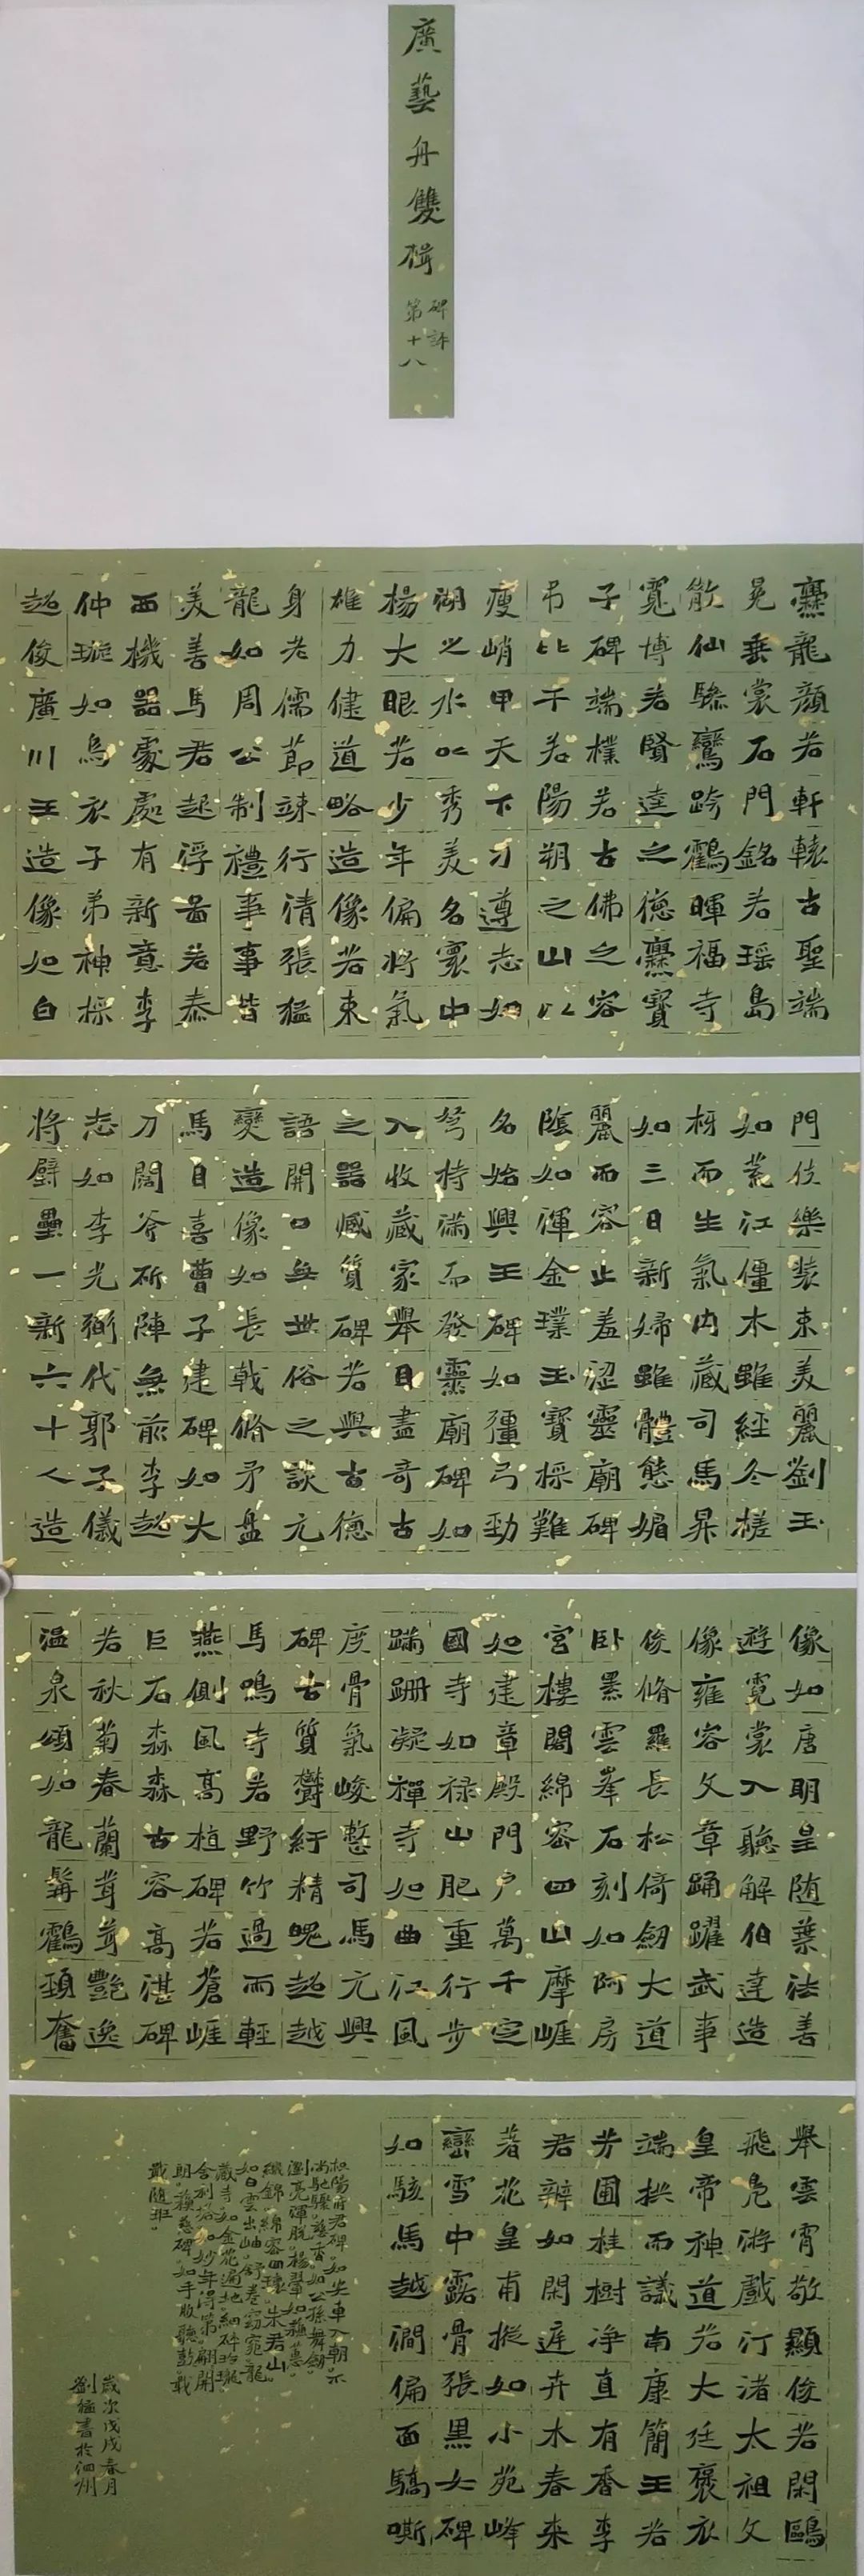 廣藝舟雙楫
碑評
第十八
爨龍顏若軒轅古聖端
冕垂裳石門銘若瑶島
散仙驂鸞跨鶴暉福寺
寬博若賢達之德爨寶
子碑端樸若古佛之容
弔比干若陽朔之山以
瘦峭甲天下刁遵志如
湖之水以秀美名寰中
楊大眼若少年偏將氣
雄力健道略造像若束
身老儒節竦行清張猛
龍如周公制禮事事皆
美善馬君起浮圖若泰
西機器處處有新意李
仲璇如烏衣子弟神採
超俊廣川王造像如白
門伎樂裝束美麗劉玉
如荒江僵木雖經冬槎
枒而生氣内藏司馬昇
如三日新婦雖體態媚
麗而容止羞澀靈廟碑
陰如渾金璞玉寶採難
名始興王碑如彊弓勁
弩持滿而發靈廟碑如
入收藏家舉目盡奇古
之器臧質碑若與古德
語開口無世俗之談元
燮造像如長戟脩矛盤
馬自喜曹子建碑如大
刀闊斧斫陣無前李超
志如李光弼代郭子儀
將劈壘一新六十人造
像如唐明皇随葉法善
遊霓裳入聽解伯達造
像雍容文章踊躍武事
俊脩羅長松倚劒大道
卧羆雲峯石刻如阿房
宮樓閣綿密四山摩崖
如建章殿門户萬千定
國寺如禄山肥重行步
蹣跚凝禪寺如曲江風
度骨氣峻整司馬元興
碑古質鬱紆精魄超越
馬鳴寺若野竹過雨輕
燕側風高植碑若蒼崖
巨石森森古容高湛碑
若秋菊春蘭茸茸艷逸
温泉頌如龍髯鶴頸奮
舉雲霄敬顯俊若閑鷗
飛鳧游戲汀渚太祖文
皇帝神道若大廷褒衣
端拱而議南康簡王若
芳圃桂樹浄直有香李
君辧如閑庭卉木春來
著花皇甫掞如小苑峰
巒雪中露骨張黑女碑
如駭馬越澗偏面驕嘶
枳陽府君碑如安車入朝不
尚馳驟慈香如公孫舞劒
瀏亮渾脱楊翬如蘇蕙
織錦綿密四環朱君山
如白雲出岫舒卷窈窕龍
藏寺如金花遍地細碎玲瓏
舍利塔如妙年得第翩開
朗蘇慈碑如手版聽鼓戢
戢随班
歲次戊戌春月
劉猛書於泗州